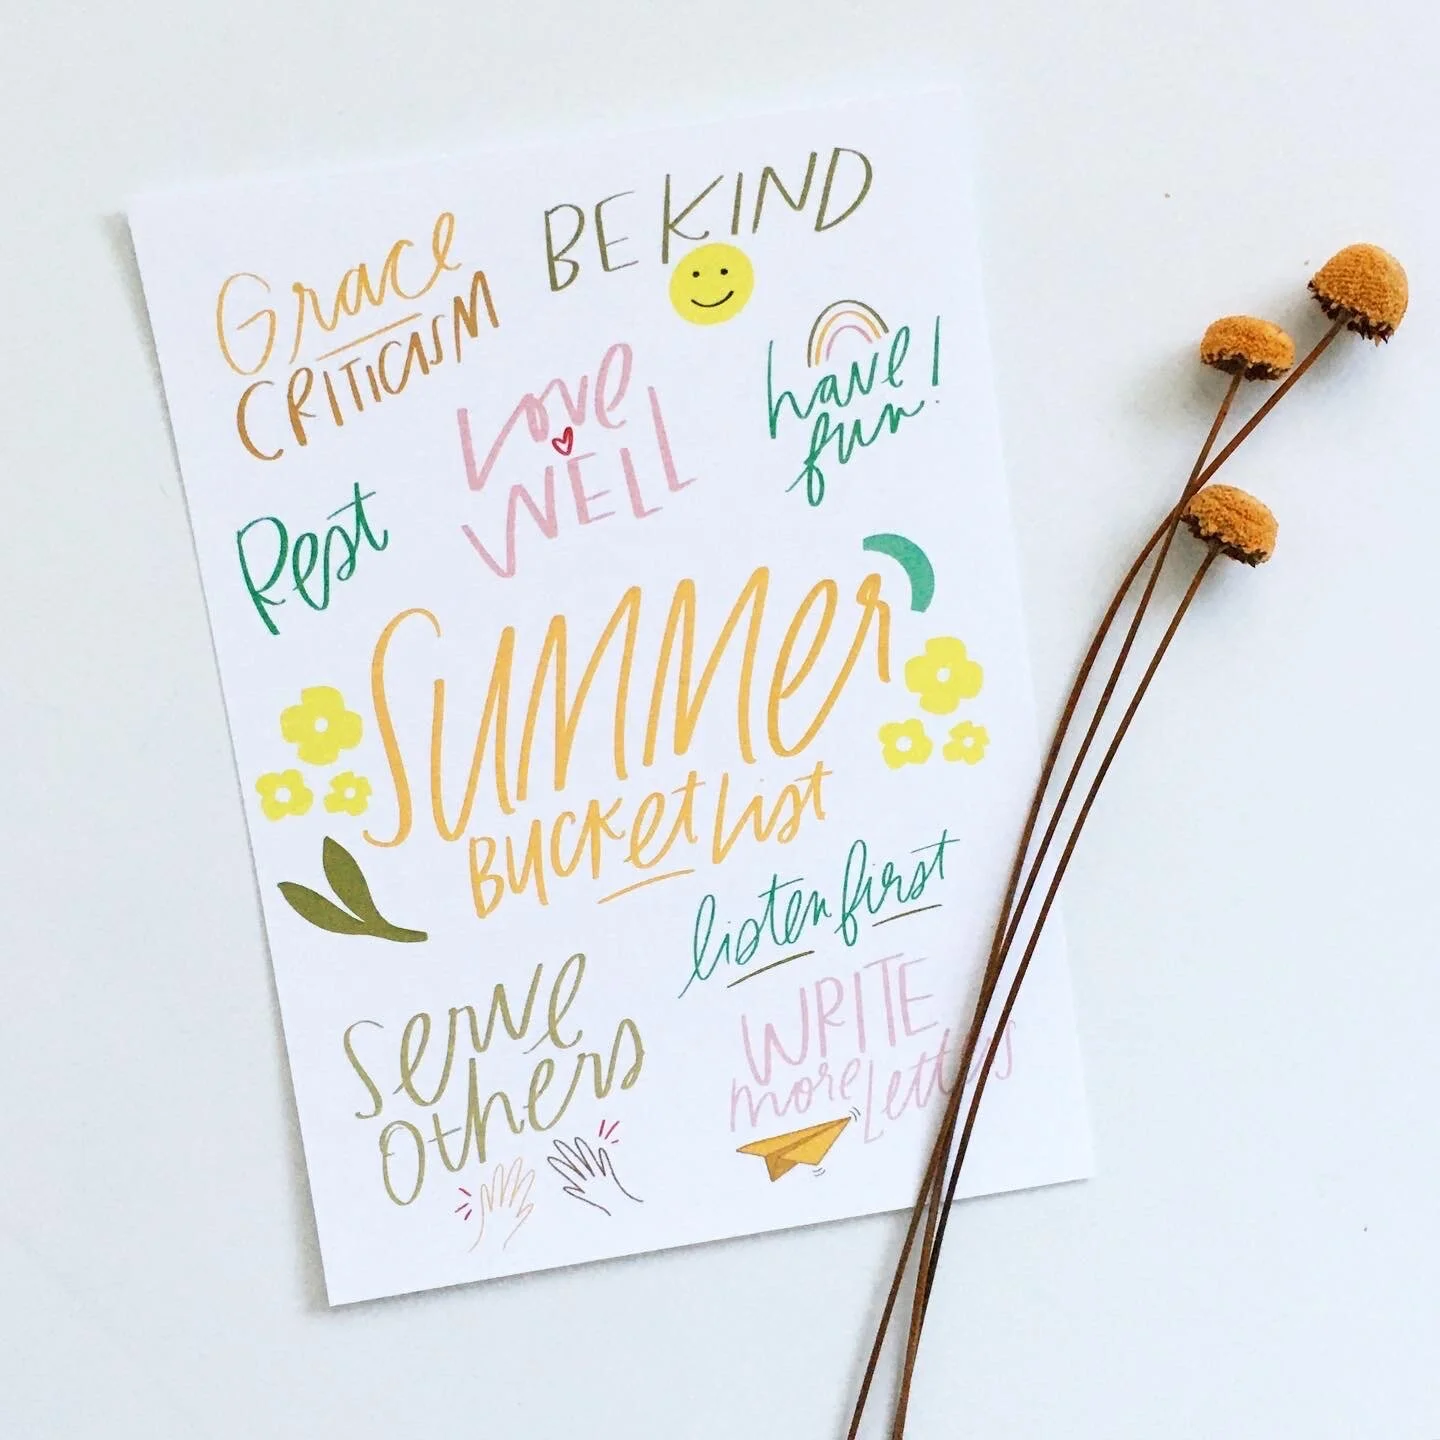 Grace
CRITICISM
BE KIND
Love
WELL
have
fun!
Rest
SUMMER
BUCKET LIST
listen first
Serve
Others
WRITE
more Letters